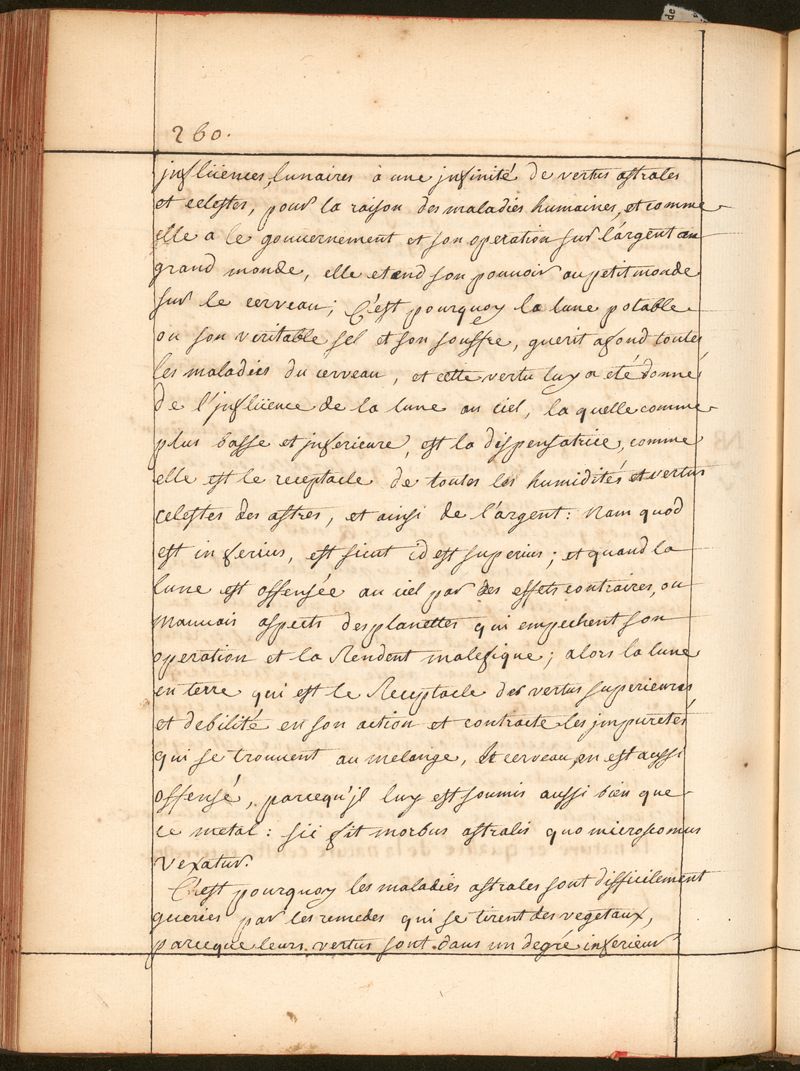 260.
jnflüences, lunaires a une jnfinité de vertus astrales
et celestes, pour la raison des maladies humaines, et comme
elle a le gouuernement et son operation sur l'argent au
grand monde, elle etend son pouuoir au petit monde
sur le cerveau; C'est pourquoy la lune potable
ou son veritable sel et son souffre, guerit a fond toutes
les maladies du cerveau, et cette vertu luy a eté donné
de l'jnflüence de la lune au ciel, la quelle comme
plus basse et jnferieure, est la dispensatrice, comme
elle est le receptacle de toutes les humidités et vertus
celestes des astres, et ainsi de l'argent: Nam quod
est inferius, est sicut id est superius; et quand la
lune est offensée au ciel par des effets contraires, ou
mauuais aspects des planettes qui empechent son
operation et la Rendent malefique; alors la lune
en terre qui est le Receptacle des vertus superieures
et debilité en son action et contracte les jmpuretés
qui se trouuent au melange, le cerveau en est aussi
offensé, parcequ'jl luy est soumis aussi bien que
ce metal: sic fit morbus astralis quo microscomus
vexatur.
C'est pourquoy les maladies astrales sont difficilement
gueries par les remedes qui se tirent des vegetaux,
parceque leurs vertus sont dans un degré inferieur